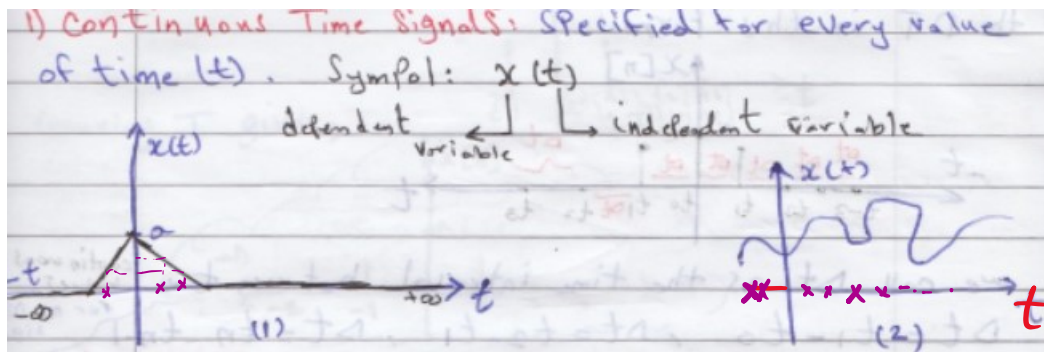 1) Continuous Time Signals: Specified for every value
of time (t). Sympol: x(t)
dependent variable
independent variable
x(t)
a
-t
-∞
+∞
t
(1)
x(t)
t
(2)